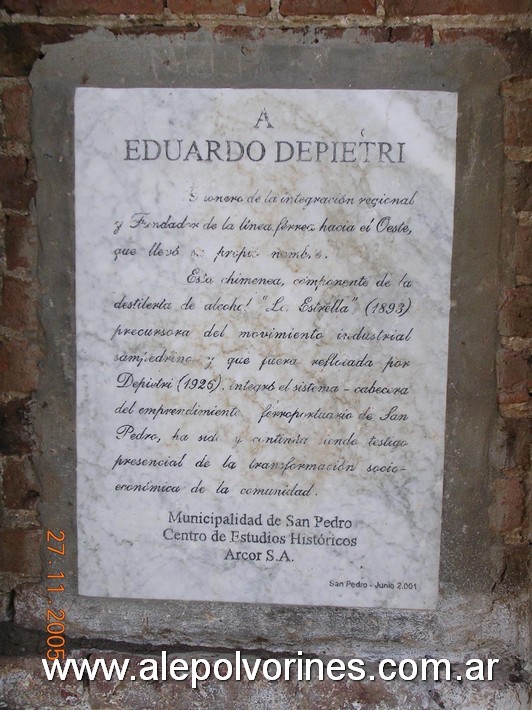 A
EDUARDO DEPIETRI
Pionero de la integración regional
y Fundador de la línea férrea hacia el Oeste,
que llevó su propio nombre.
Esta chimenea, componente de la
destilería de alcohol "La Estrella" (1893)
precursora del movimiento industrial
sampedrino y que fuera reflotada por
Depietri (1926), integró el sistema - cabecera
del emprendimiento ferroportuario de San
Pedro, ha sido y continúa siendo testigo
presencial de la transformación socio-
económica de la comunidad.
Municipalidad de San Pedro
Centro de Estudios Históricos
Arcor S.A.
San Pedro - Junio 2.001
27 11 2005
www.alepolvorines.com.ar